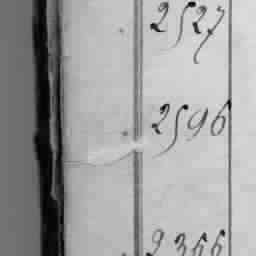 2527
2596
2366